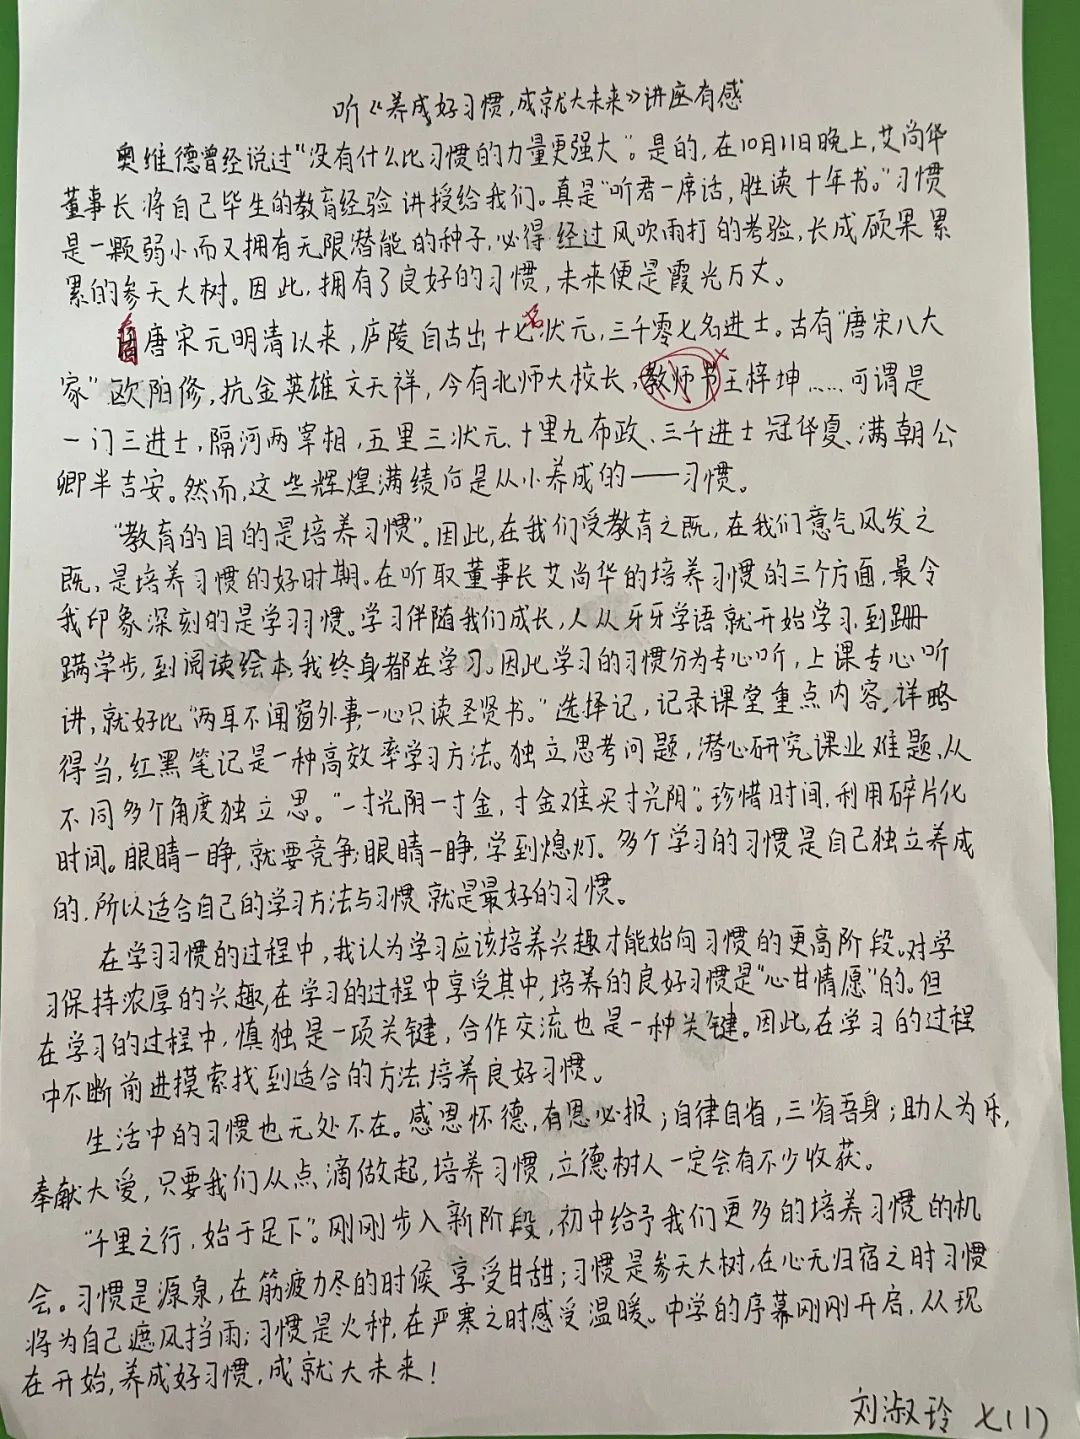 听《养成好习惯,成就大未来》讲座有感
奥维德曾经说过"没有什么比习惯的力量更强大"。是的,在10月11日晚上,艾尚华
董事长将自己毕生的教育经验讲授给我们。真是"听君一席话,胜读十年书。"习惯
是一颗弱小而又拥有无限潜能的种子,必得经过风吹雨打的考验,长成硕果累
累的参天大树。因此,拥有了良好的习惯,未来便是霞光万丈。
自唐宋元明清以来,庐陵自古出十七名状元,三千零七名进士。古有"唐宋八大
家"欧阳修,抗金英雄文天祥,今有北师大校长,教师节王梓坤……可谓是
一门三进士,隔河两宰相,五里三状元、十里九布政、三千进士冠华夏、满朝公
卿半吉安。然而,这些辉煌满绩后是从小养成的——习惯。
"教育的目的是培养习惯"。因此,在我们受教育之既,在我们意气风发之
既,是培养习惯的好时期。在听取董事长艾尚华的培养习惯的三个方面,最令
我印象深刻的是学习习惯。学习伴随我们成长,人从牙牙学语就开始学习,到跚
蹒学步,到阅读绘本,我终身都在学习。因此学习的习惯分为专心听,上课专心听
讲,就好比"两耳不闻窗外事,一心只读圣贤书。"选择记,记录课堂重点内容,详略
得当,红黑笔记是一种高效率学习方法。独立思考问题,潜心研究课业难题,从
不同多个角度独立思。"一寸光阴一寸金,寸金难买寸光阴"。珍惜时间,利用碎片化
时间。眼睛一睁,就要竞争;眼睛一睁,学到熄灯。多个学习的习惯是自己独立养成
的,所以适合自己的学习方法与习惯就是最好的习惯。
在学习习惯的过程中,我认为学习应该培养兴趣才能始向习惯的更高阶段。对学
习保持浓厚的兴趣,在学习的过程中享受其中,培养的良好习惯是"心甘情愿"的。但
在学习的过程中,慎独是一项关键,合作交流也是一种关键。因此,在学习的过程
中不断前进摸索找到适合的方法培养良好习惯。
生活中的习惯也无处不在。感恩怀德,有恩必报;自律自省,三省吾身;助人为乐,
奉献大爱,只要我们从点滴做起,培养习惯,立德树人一定会有不少收获。
"千里之行,始于足下"。刚刚步入新阶段,初中给予我们更多的培养习惯的机
会。习惯是源泉,在筋疲力尽的时候享受甘甜;习惯是参天大树,在心无归宿之时习惯
将为自己遮风挡雨;习惯是火种,在严寒之时感受温暖。中学的序幕刚刚开启,从现
在开始,养成好习惯,成就大未来!
刘淑玲 七(1)